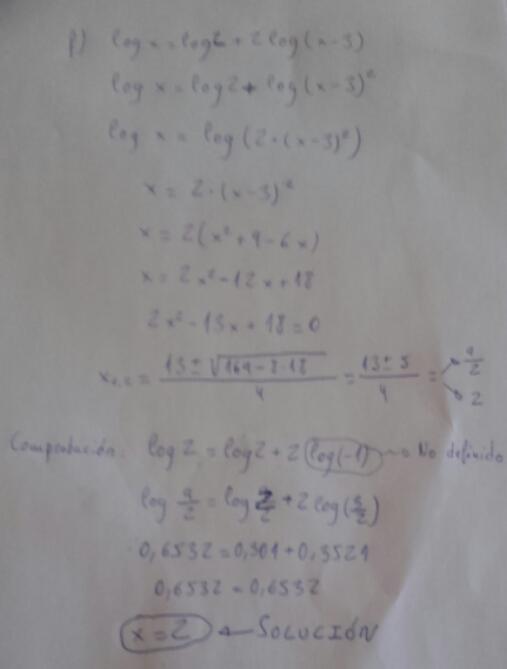 f) log x = log 2 + 2 log (x-3)
log x = log 2 + log (x-3)²
log x = log (2·(x-3)²)
x = 2·(x-3)²
x = 2(x² + 9 - 6x)
x = 2x² - 12x + 18
2x² - 13x + 18 = 0
x₁,₂ = (13 ± √(169 - 8·18))/4 = (13 ± 5)/4 = 9/2
2
Comprobación: log 2 = log 2 + 2 log(-1) → No definido
log 9/2 = log 2 + 2 log (3/2)
0,6532 = 0,301 + 0,3521
0,6532 = 0,6532
x = 2 ← SOLUCIÓN